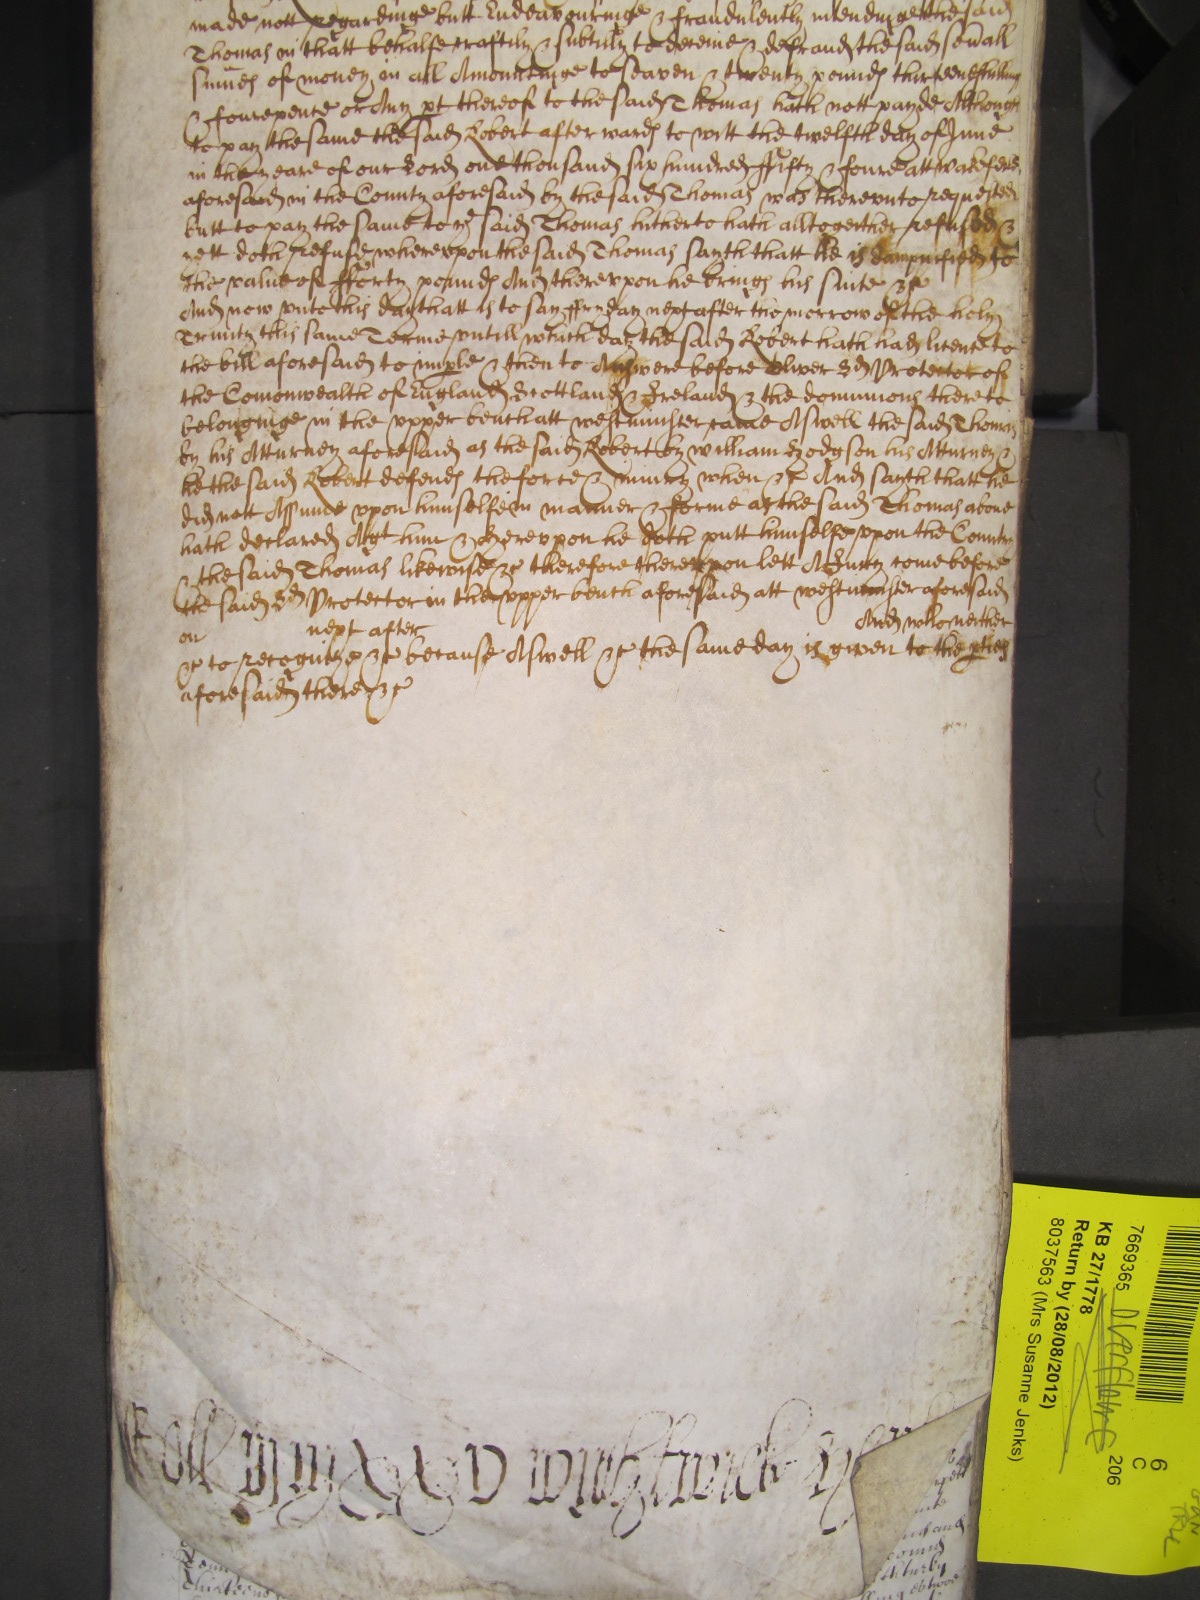 made nott regardinge butt Endeavouringe & fraudulently intendinge the said
Thomas in thatt behalfe craftily & subtilly to deceive & defraud the said sevall
sumes of money in all Amountinge to seaven & twenty pounds thirteene shillings
& fourepence or Any pt thereof to the said Thomas hath nott payde Although
to pay the same the said Robert afterwards to witt the twelfth day of June
in the yeare of our Lord one thousand six hundred ffifty & foure att Wakefeild
aforesaid in the County aforesaid by the said Thomas was therevnto requested
butt to pay the same to ye said Thomas hitherto hath alltogeither refused &
yett doth refuse wherevpon the said Thomas sayth thatt he is dampnified to
the value of fforty pounds And therevpon he brings his suite &c
And now vnto this day thatt is to say ffryday next after the morrow of the holy
Trinity this same Terme vntill which day the said Robert hath had licence to
the bill aforesaid to imple & then to Answere before Oliver Ld Protector of
the Comonwealth of England Scottland & Ireland & the dominions thereto
belonginge in the vpper bench att westminster came Aswell the said Thomas
by his Atturney aforesaid as the said Robert by William Hodgson his Atturney &
he the said Robert defends the force & iniury when &c And sayth thatt he
did nott Assume vpon himselfe in manner & forme as the said Thomas above
hath declared Agt him & Therevpon he doth putt himselfe vpon the Country
& the said Thomas likewise &c therefore therevpon lett A Jury come before
the said Ld Protector in the vpper bench aforesaid att westminster aforesaid
on next after And who neither
&c to recognize &c because Aswell &c the same day is given to the pties
aforesaid there &c
Roll Wightwick
7669365
KB 27/1778
Return by (28/08/2012)
8037563 (Mrs Susanne Jenks)
6
C
206